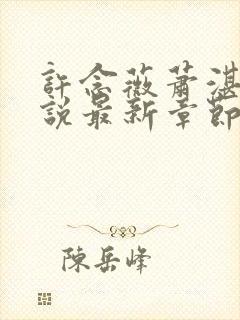 許念薇蕭湛
說最新章節
陳岳峰